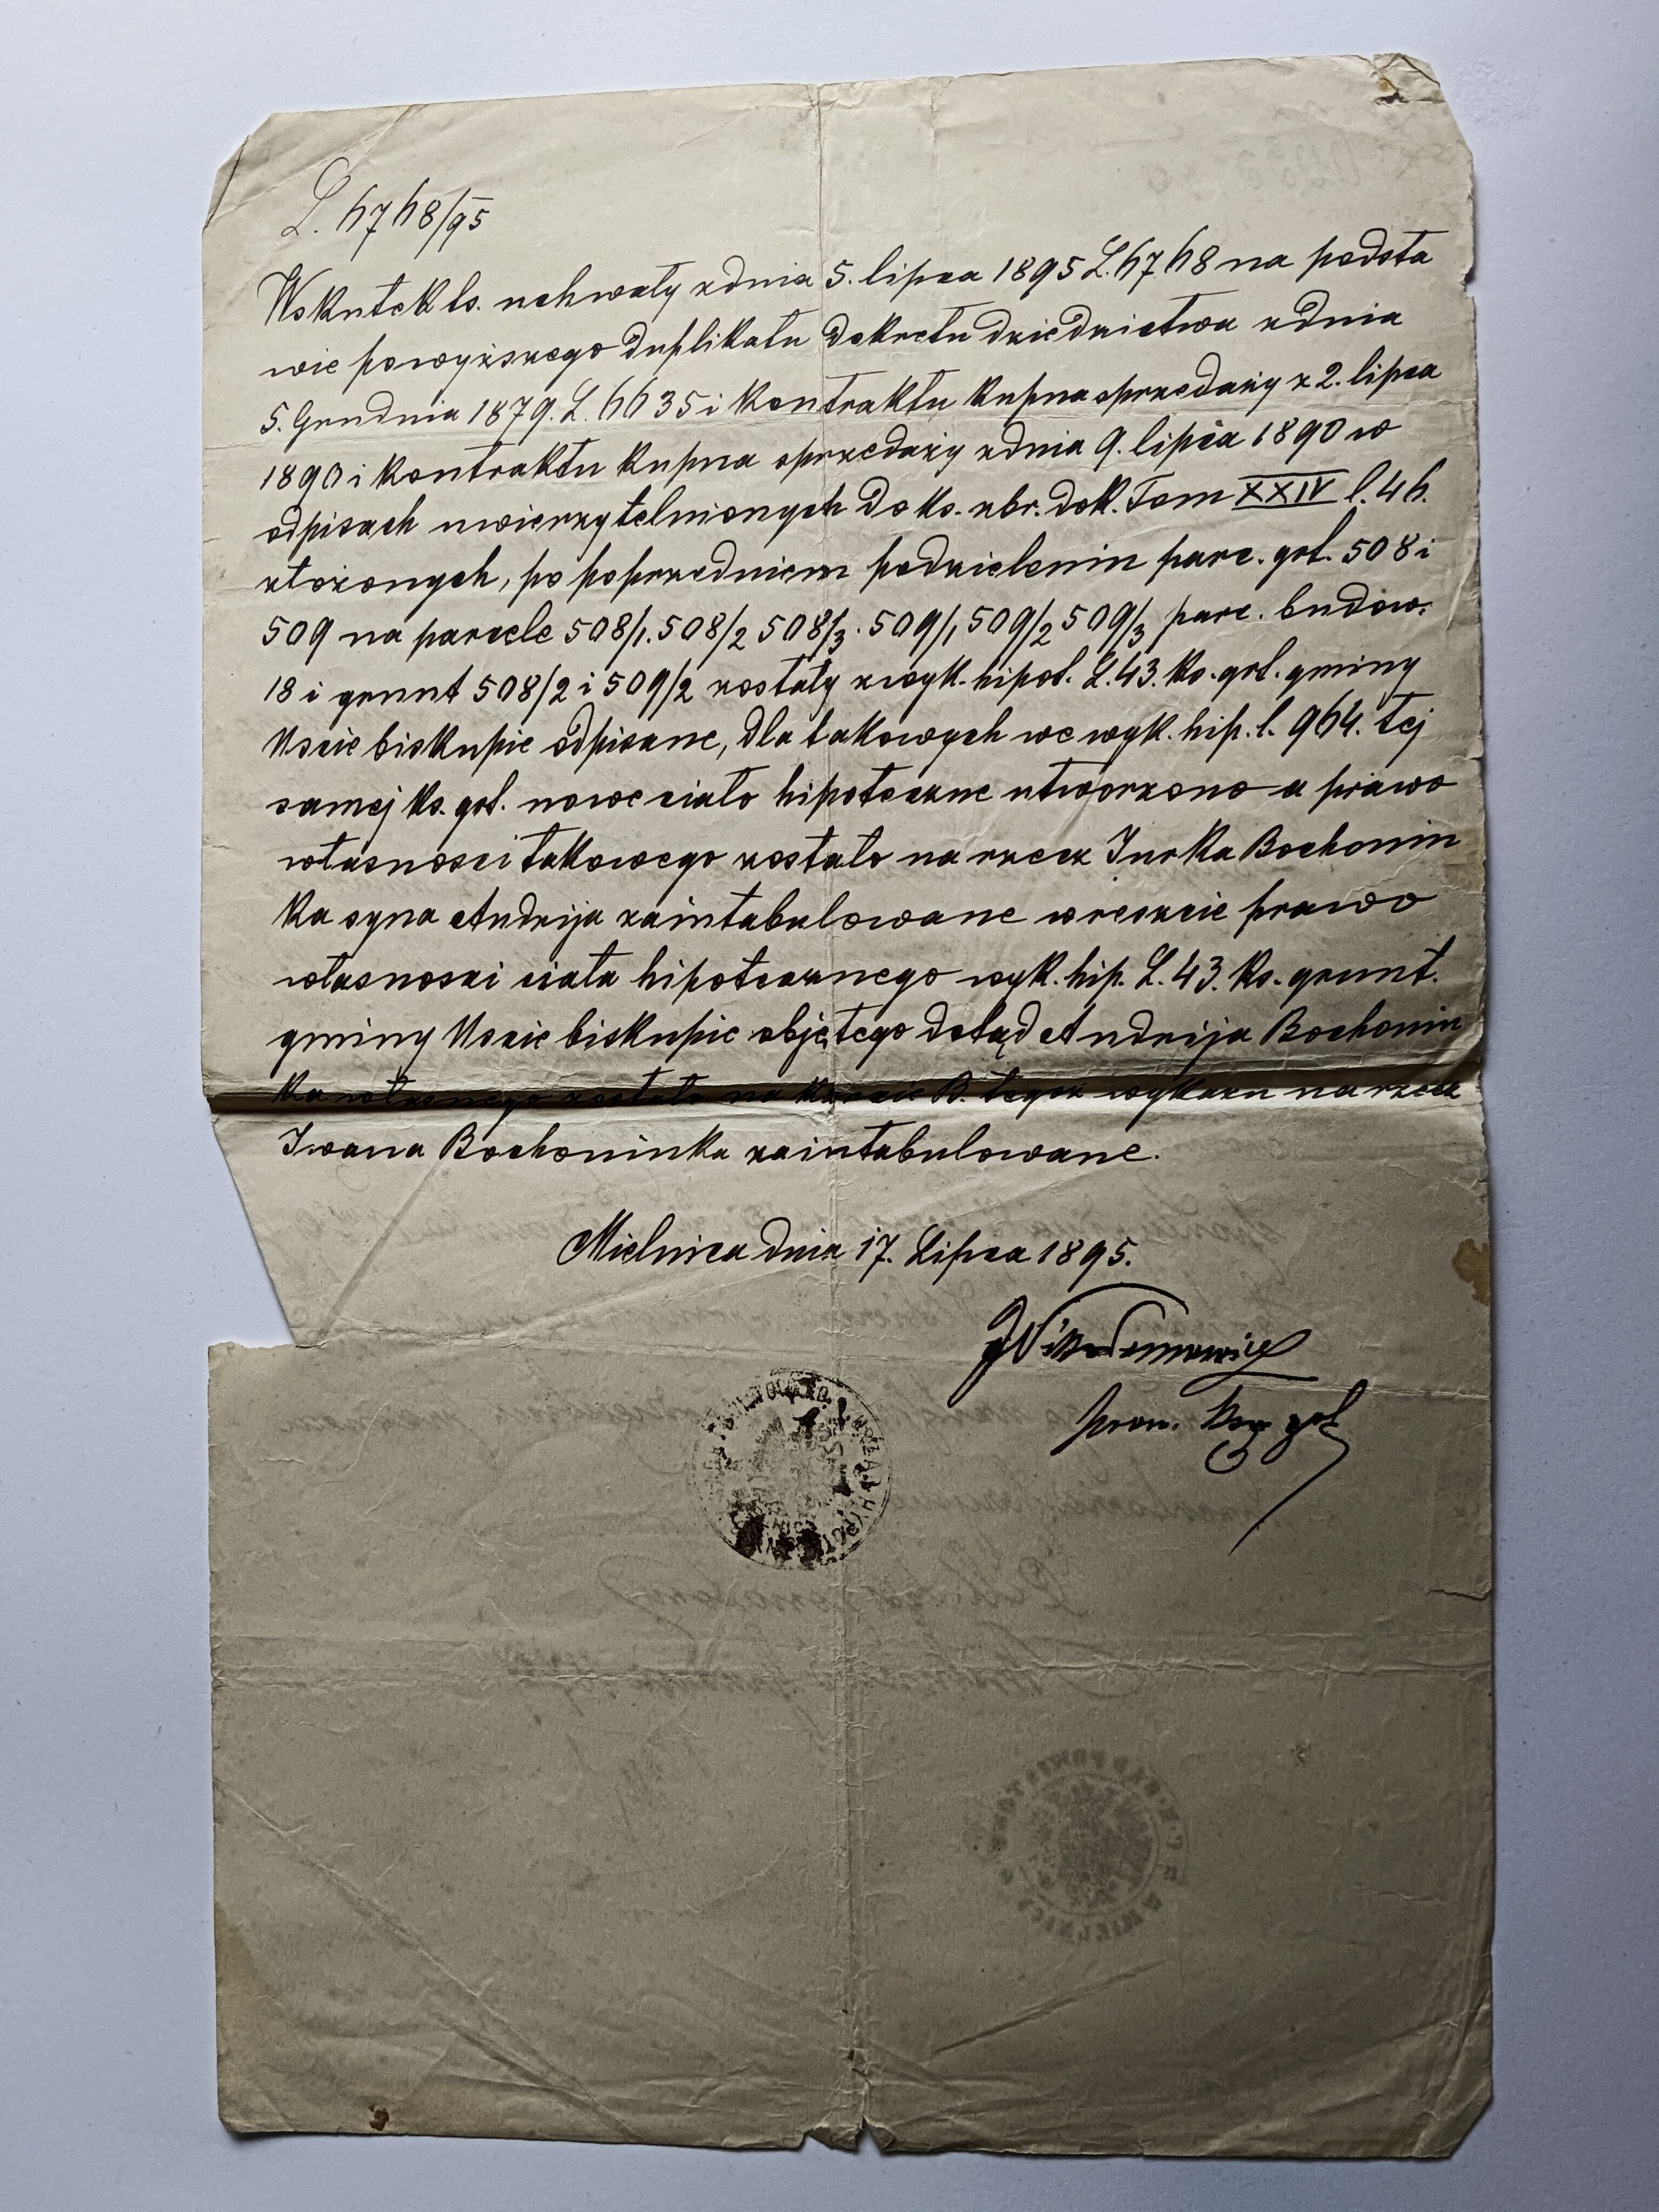 L. 6768/95
Wskutek ts. uchwały z dnia 5. lipca 1895 L. 6768 na podsta
wie powyższego duplikatu dekretu dziedzictwa z dnia
5. Grudnia 1879. L. 6635 i kontraktu kupna sprzedaży z 2. lipca
1890 i kontraktu kupna sprzedaży z dnia 9. lipca 1890 w
odpisach uwierzytelnionych do ks. zbr. dok. Tom XXIV l. 46.
złożonych, po poprzedniem podzieleniu parc. grt. 508 i
509 na parcele 508/1. 508/2 508/3. 509/1 509/2 509/3 parc. budow.
18 i grunt 508/2 i 509/2 zostały z wyk. hipot. L. 43. ks. grt. gminy
Uscie biskupie odpisane, dla takowych we wyk. hip. l. 964. tej
samej ks. grt. nowe ciało hipoteczne utworzono a prawo
własności takowego zostało na rzecz Jurka Bochonin
ka syna Andrija zaintabulowane wreszcie prawo
własności ciała hipotecznego wyk. hip. L. 43. ks. grunt.
gminy Uscie biskupie objętego dotąd Andrija Bochonin
ka własnego zostało na karcie B. tegoż wykazu na rzecz
Iwana Bochoninka zaintabulowane.
Mielnica dnia 17. Lipca 1895.
Nikodemowicz
prow. ksg. grt